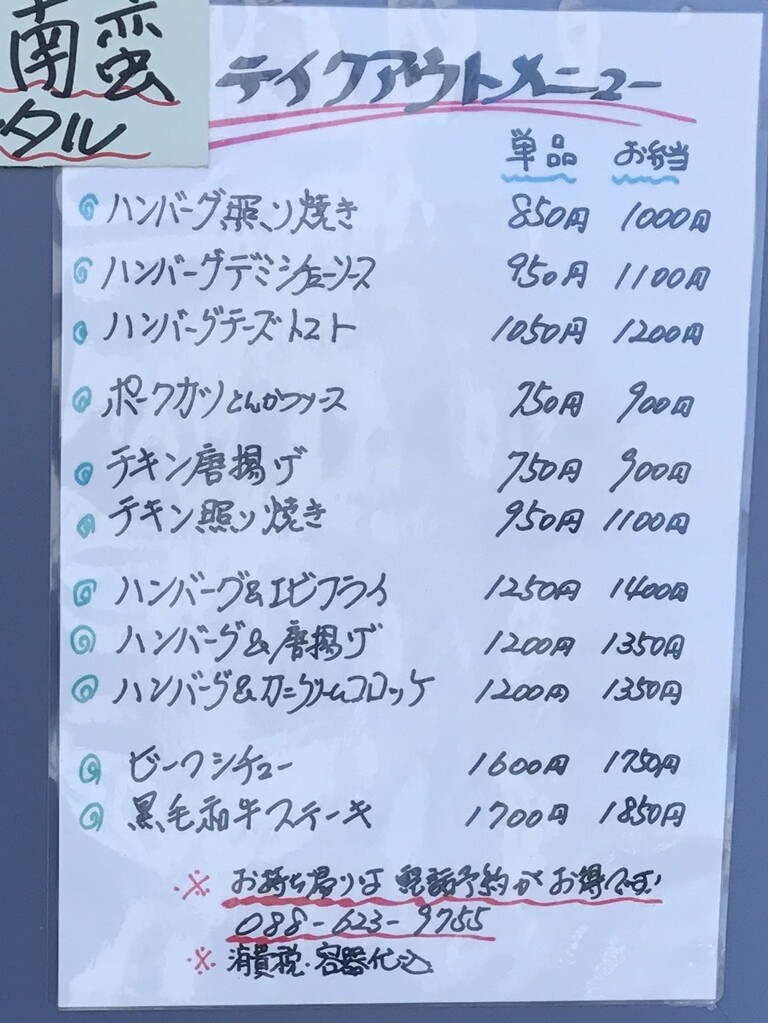 南蛮
タル
テイクアウトメニュー
単品 お弁当
ハンバーグ照り焼き 850円 1000円
ハンバーグデミシチューソース 950円 1100円
ハンバーグチーズトマト 1050円 1200円
ポークカツとんかつソース 750円 900円
チキン唐揚げ 750円 900円
チキン照り焼き 950円 1100円
ハンバーグ&エビフライ 1250円 1400円
ハンバーグ&唐揚げ 1200円 1350円
ハンバーグ&カニクリームコロッケ 1200円 1350円
ビーフシチュー 1600円 1750円
黒毛和牛ステーキ 1700円 1850円
※ お持ち帰りは 電話予約が お得です!
088-623-9755
※ 消費税・容器代込